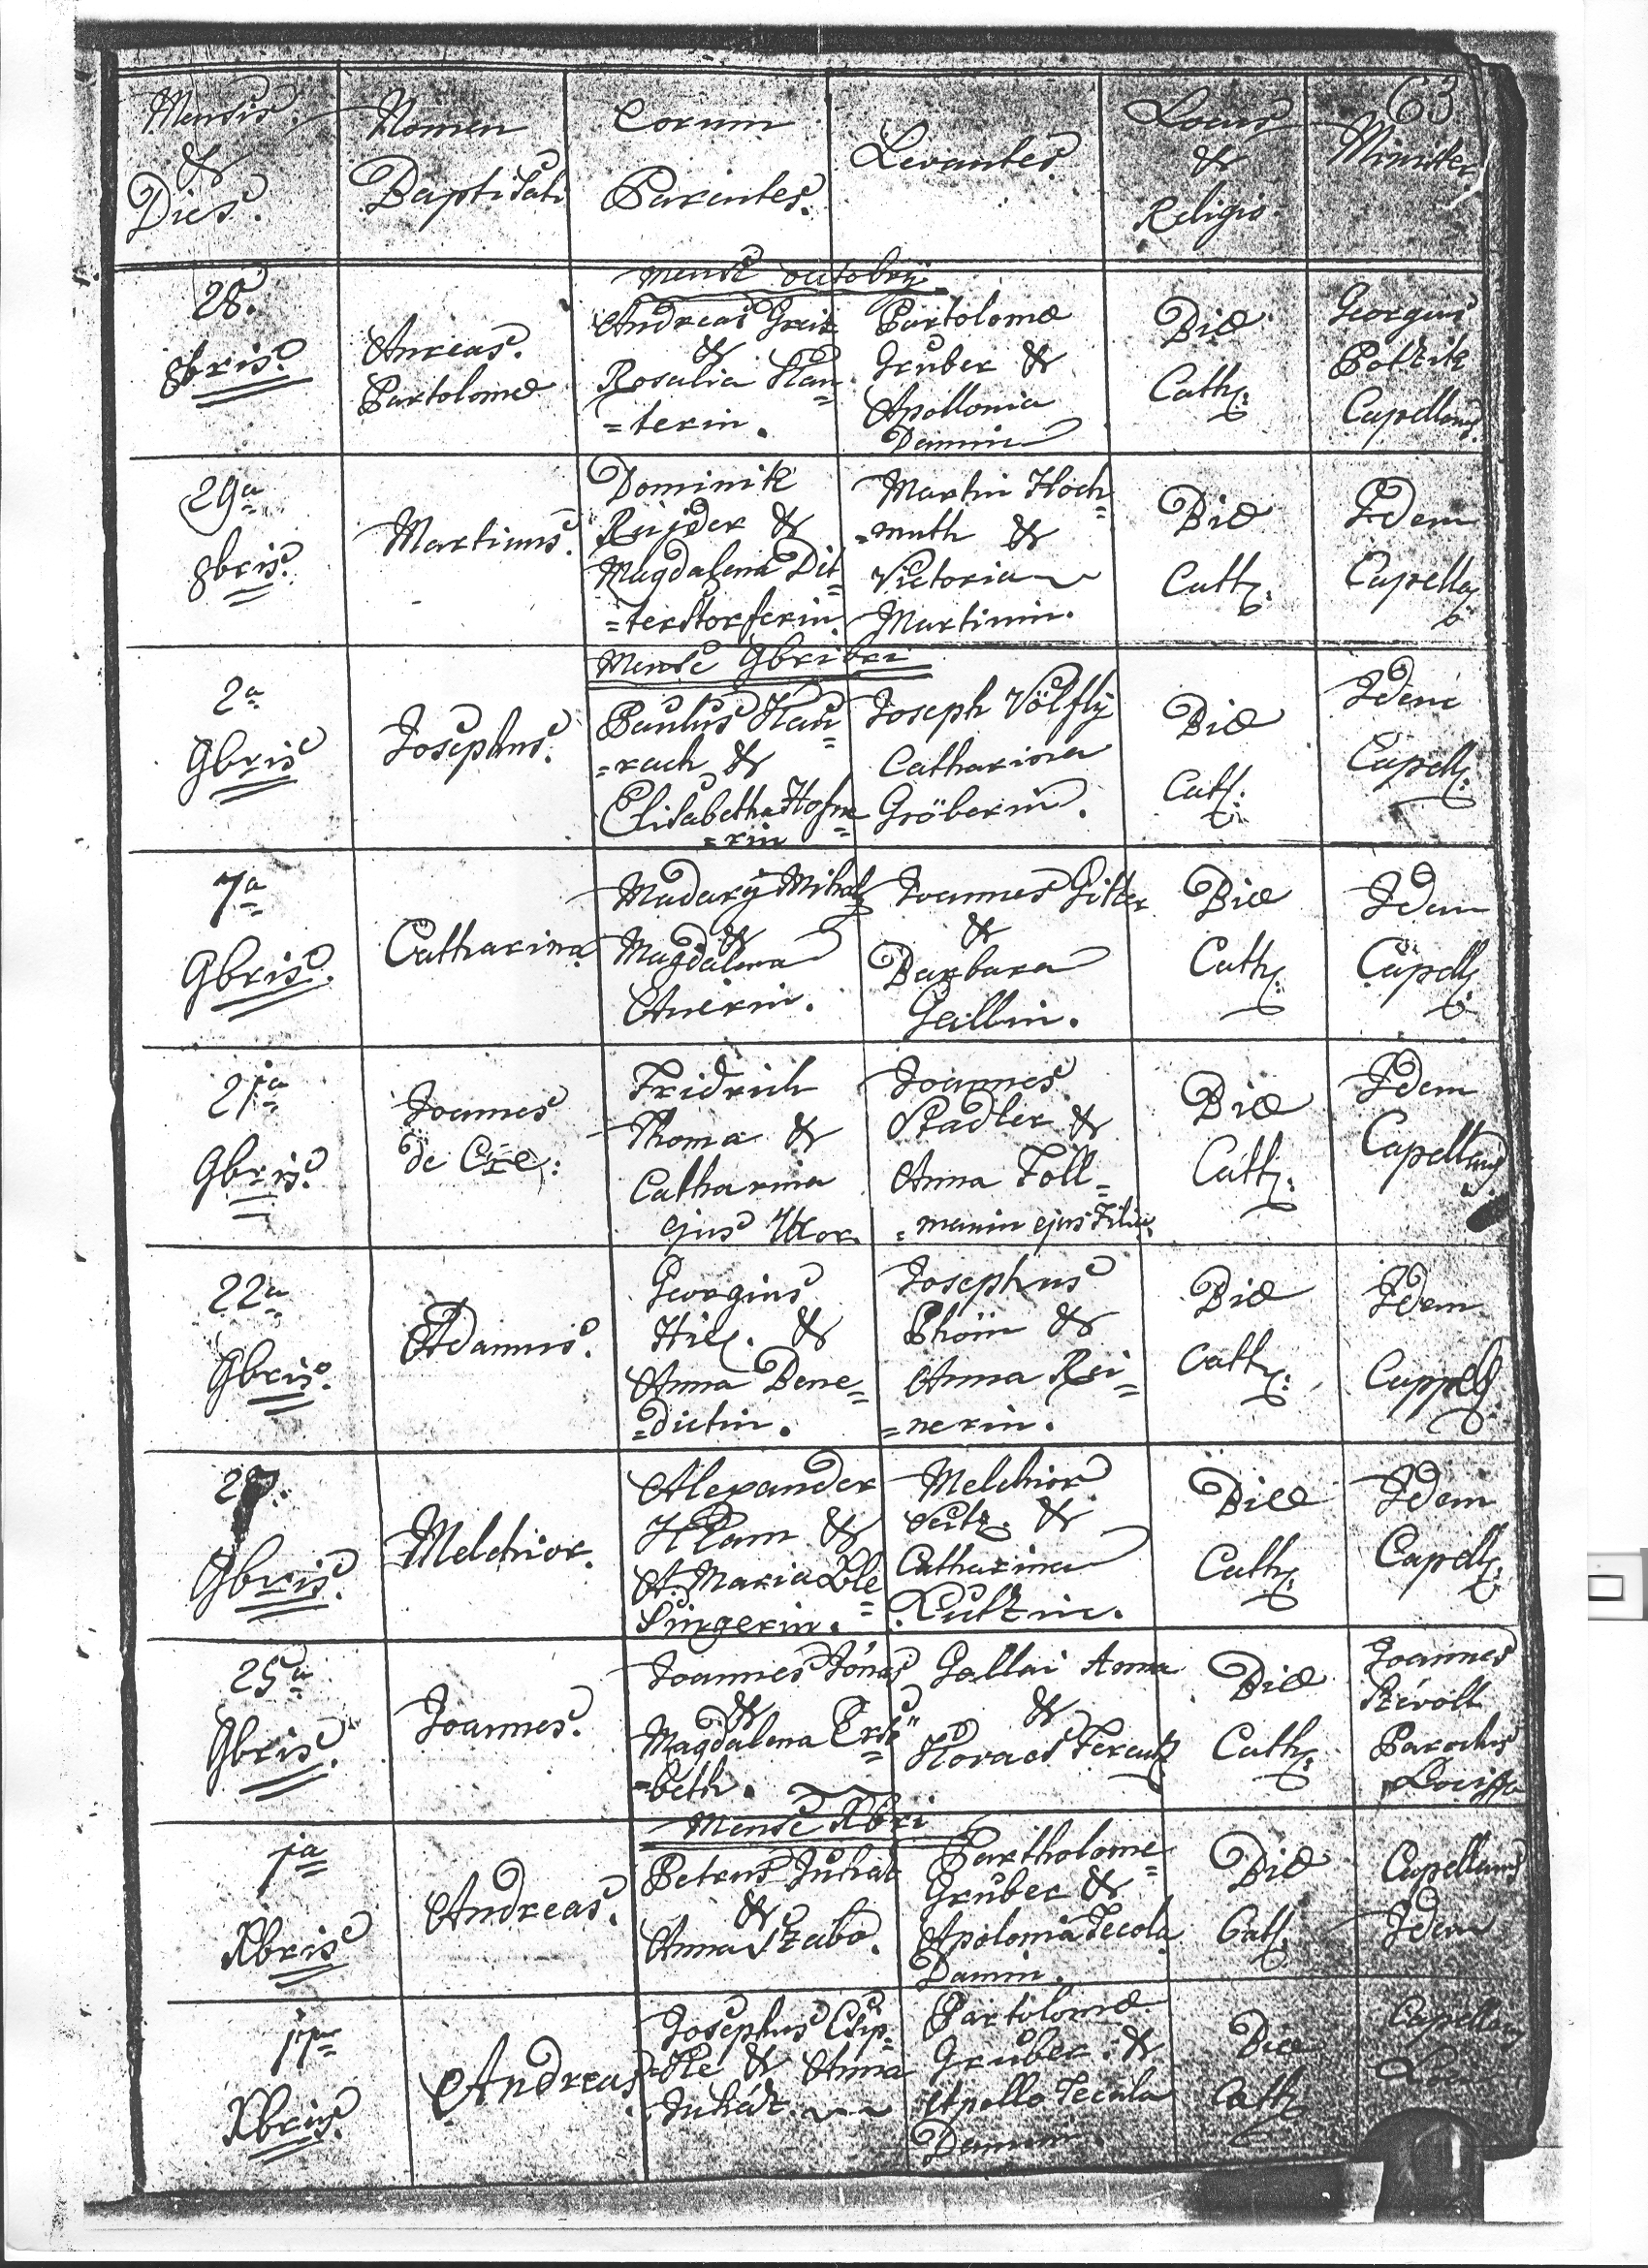 63
Mensis & Dies.
Nomen Baptisati
Eorum Parentes.
Levantes
Locus & Religio.
Minister
Mense Octobrij
28. 8bris.
Anreas. Partolome
Andreas & Rosalia Hau=
=terin.
Partolome
Gruber &
Apollonia
Damin
Bie Cath:
Georgius
Capellanus
29a 8bris.
Martinus.
Dominik
&
Magdalena Dit=
=terstorferin.
Martin Hoch=
=muth &
Victoria
Martinin.
Bie Cath:
Idem Capella:
Mense 9bribri
2a 9bris
Josephus.
Paulus Hau=
=rach &
Elisabetha Hofne=
=rin
Joseph Völfly
Catharina
Gröberin.
Bie Cath:
Idem Capell:
7a 9bris.
Catharina
Madarÿ Mihaly
&
Magdalena
Auerin.
Joannes Gitter
&
Barbara
Geillin.
Bie Cath:
Idem Capell:
21a 9bris.
Joannes de Cre:
Fridrich
Thoma &
Catharina
ejus Uxor.
Joannes
Stadler &
Anna Foll=
=manin ejus Filia.
Bie Cath:
Idem Capellanus
22a 9bris.
Adamus.
Georgius
Hil. &
Anna Bene=
=dictin.
Josephus
&
Anna Rei=
=nerin.
Bie Cath:
Idem Cappell:
9bris.
Melchior.
Alexander
&
A. Maria Ble=
singerin.
Melchior
Veitz. &
Catharina
Lutzin.
Biee Cath:
Idem Capell:
25a 9bris.
Joannes.
Joannes Jónas
&
Magdalena Erse=
=beth.
Gallai Anna
&
Kovacs Ferentz
Bie Cath:
Joannes
Parochus
Mense Xbri
1a Xbris
Andreas.
Petrus Juhas
&
Anna Szabo.
Partholome=
Gruber &
Apolonia Tecola
Damin.
Bie Cath:
Capellanus Idem
17a Xbris.
Andreas
Josephus Csip=
=ke & Anna
Juhász.
Partolome
Gruber: &
Apollo Tecula
Damin.
Biee Cath:
Capellanus